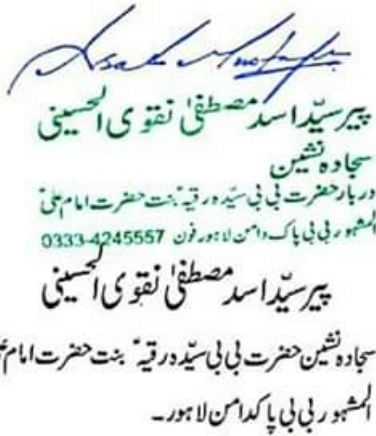 Asad Mustafa
پیر سیّد اسد مصطفیٰ نقوی الحسینی
سجادہ نشین
دربار حضرت بی بی سیّدہ رقیہؑ بنت حضرت امام علیؑ
المشہور بی بی پاک دامن لاہور فون 0333-4245557
پیر سیّد اسد مصطفیٰ نقوی الحسینی
سجادہ نشین حضرت بی بی سیّدہ رقیہؑ بنت حضرت امام
المشہور بی بی پاکدامن لاہور۔